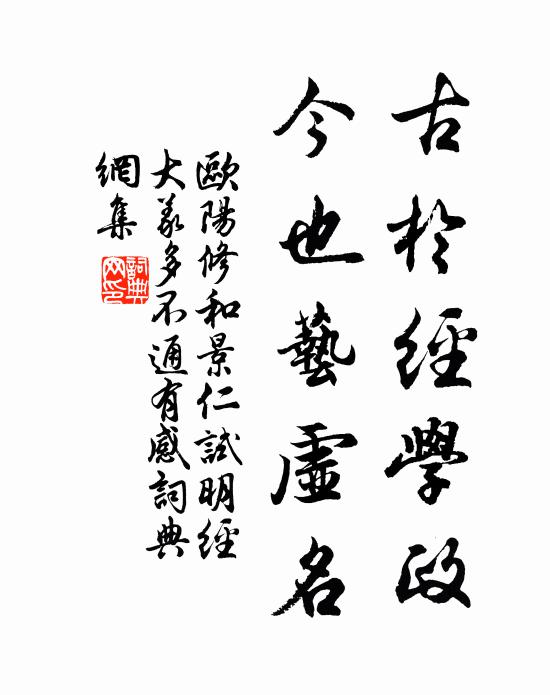 古於經學政
今也藝虛名
歐陽修和景仁試明經
大義多不通有感詞典
網集
詞典
网印